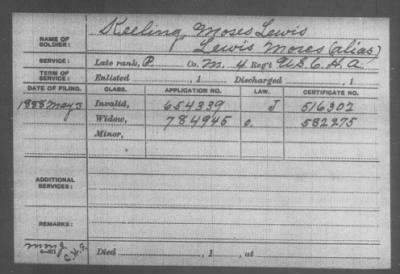 Keeling, Moses Lewis
NAME OF SOLDIER: Lewis Moses (alias)
SERVICE: Late rank, P. Co. M. 4 Reg't U.S.C.H.A.
TERM OF SERVICE: Enlisted , 1 Discharged , 1
DATE OF FILING. CLASS. APPLICATION NO. LAW. CERTIFICATE NO.
1888 May 3 Invalid, 654339 J 516302
Widow, 784945 O. 582275
Minor,
ADDITIONAL SERVICES:
REMARKS:
Died , 1 , at